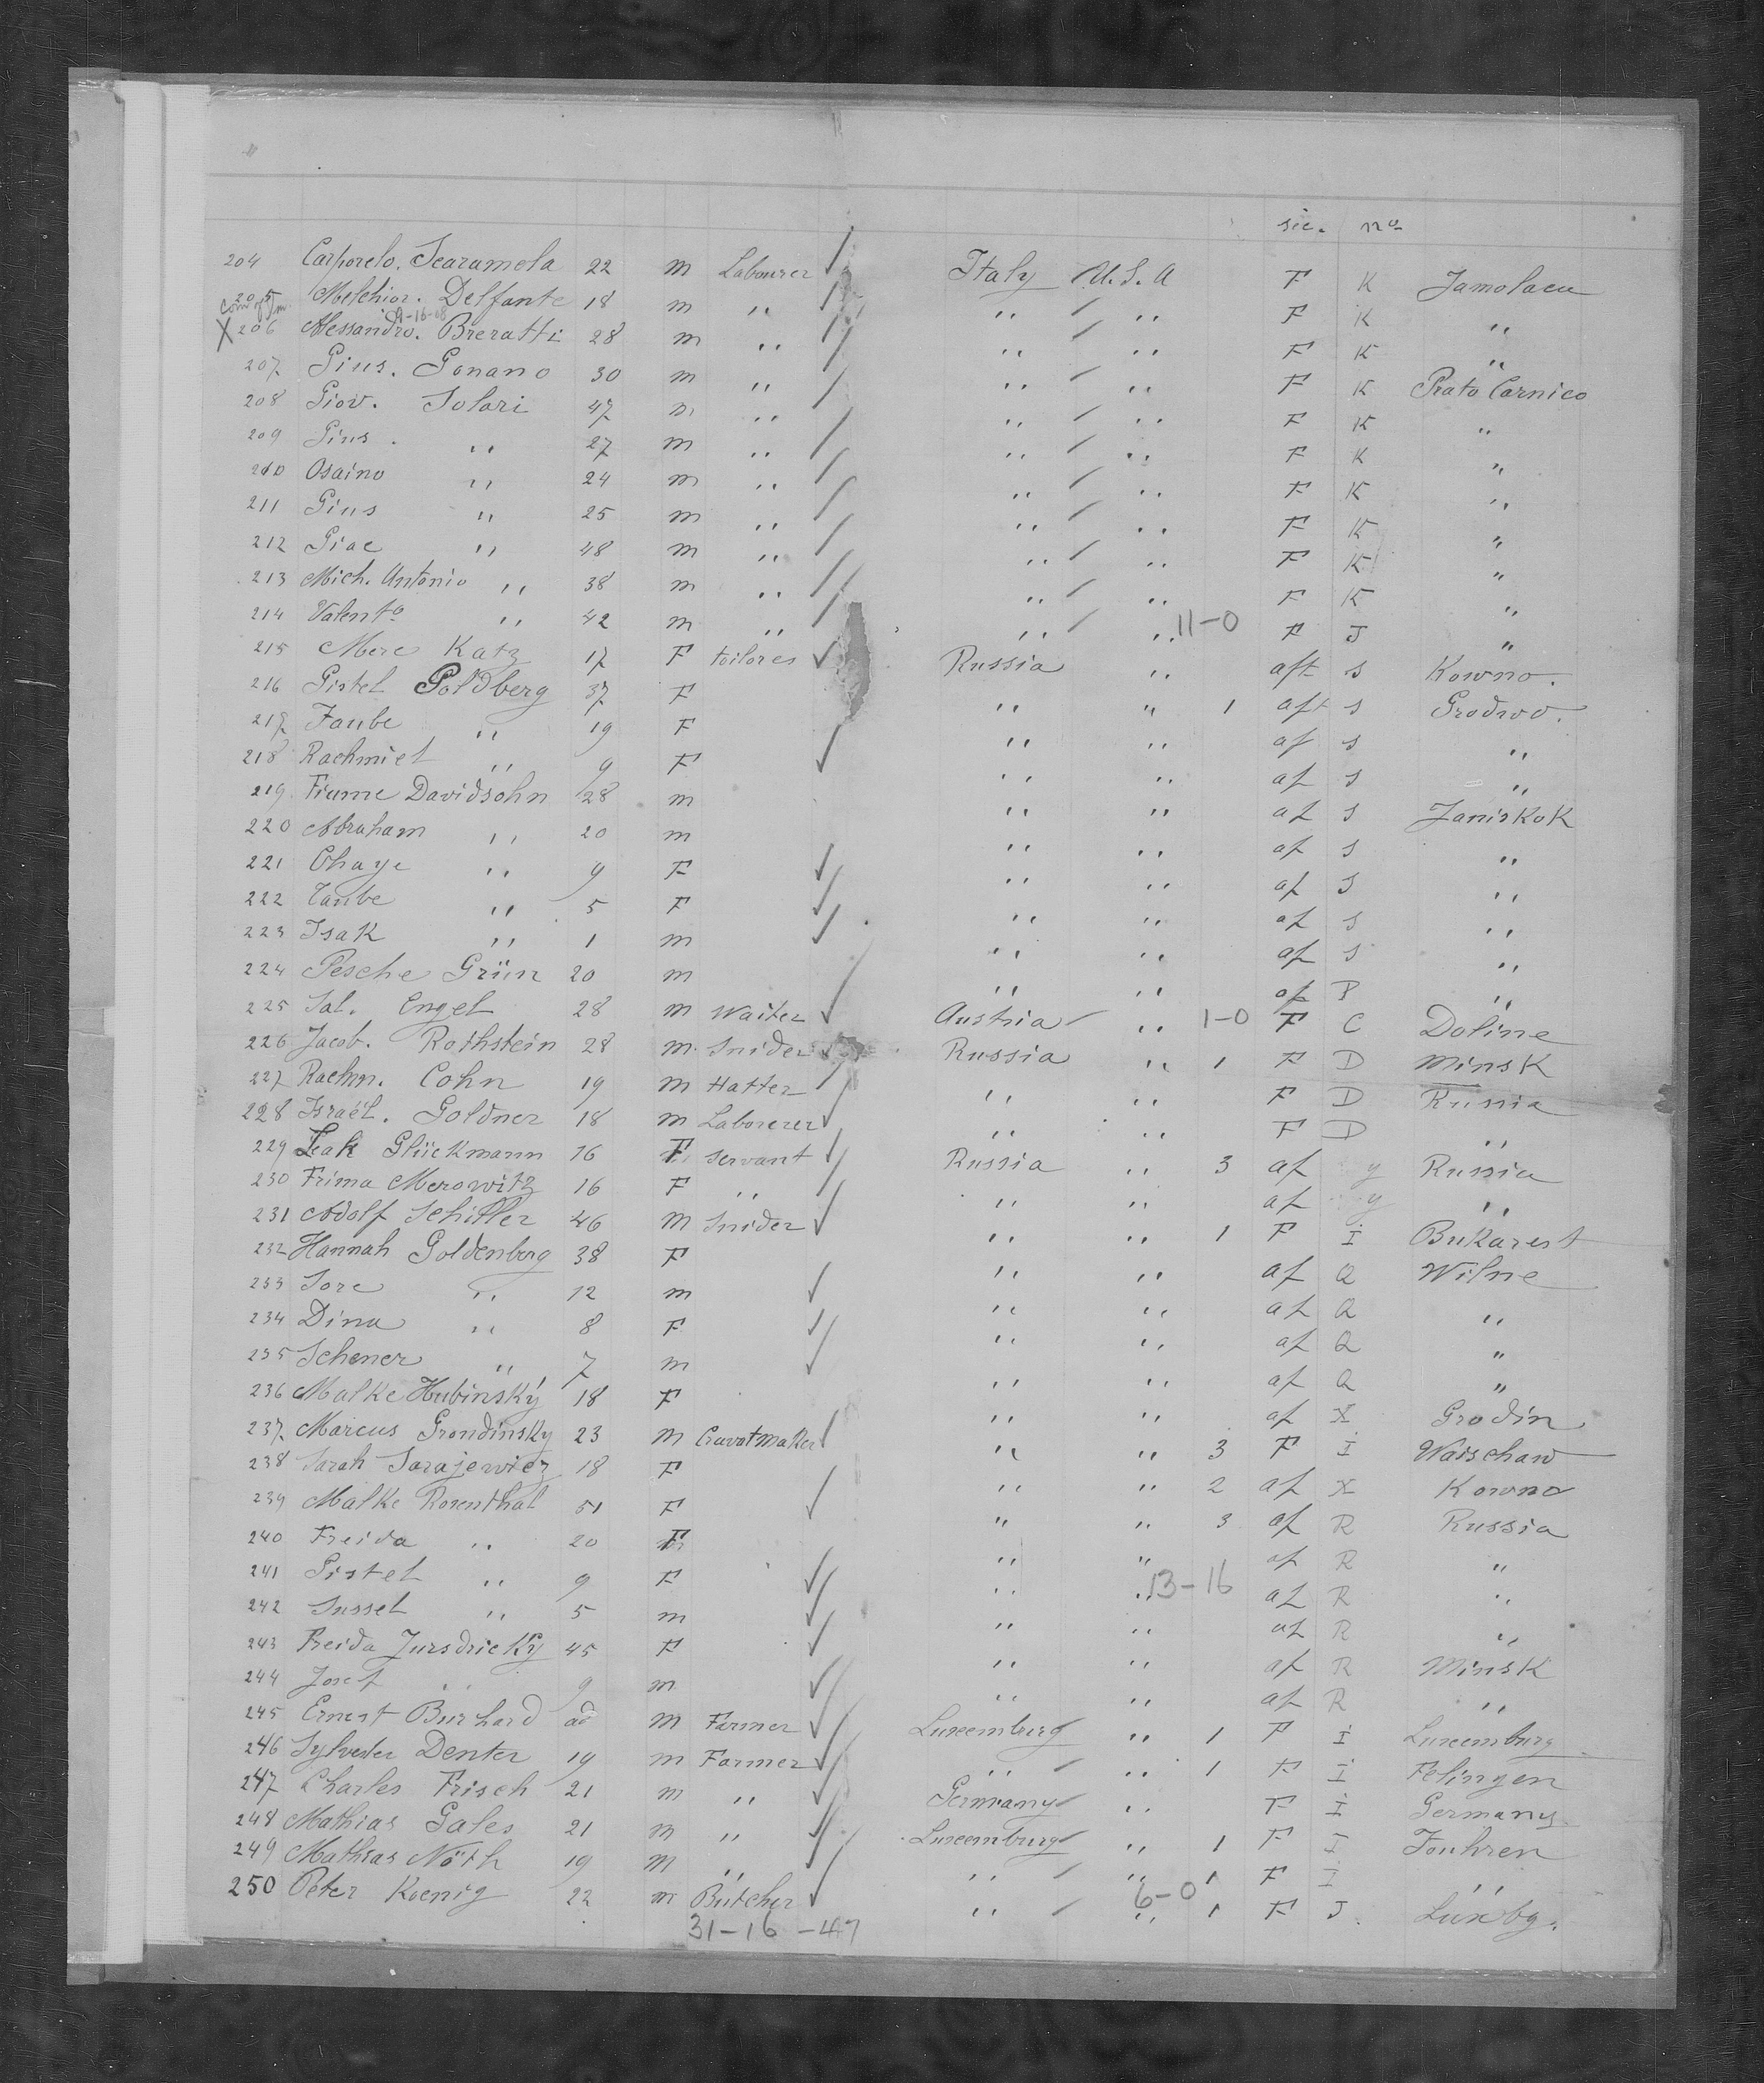 sie. no
204 Carporelo. Scaramela 22 m Labourer Italy U.S.A F K Jamolacu
205 Melchior. Delfante 18 m ,, ,, ,, F K ,,
X 206 Alessandro. Breratti 28 m ,, ,, ,, F K ,,
207 Gius. Gonano 30 m ,, ,, ,, F K Prato Carnico
208 Giov. Solari 47 m ,, ,, ,, F K ,,
209 Gius. ,, 27 m ,, ,, ,, F K ,,
210 Osaino ,, 24 m ,, ,, ,, F K ,,
211 Gius ,, 25 m ,, ,, ,, F K ,,
212 Giac ,, 48 m ,, ,, ,, F K ,,
213 Mich. Antonio ,, 38 m ,, ,, ,, F K ,,
214 Valento ,, 42 m ,, ,, ,, 11-0 F J ,,
215 Mere Katz 17 F toilores Russia ,, aft s Kowno.
216 Gistel Goldberg 37 F ,, ,, 1 aft s Grodwo.
217 Taube ,, 19 F ,, ,, af s ,,
218 Rachmiel ,, 9 F ,, ,, af s ,,
219 Frume Davidsohn 28 m ,, ,, af s Janiskok
220 Abraham ,, 20 m ,, ,, af s ,,
221 Chaye ,, 9 F ,, ,, af s ,,
222 Taube ,, 5 F ,, ,, af s ,,
223 Isak ,, 1 m ,, ,, af s ,,
224 Pesche Grün 20 m ,, ,, af P ,,
225 Sal. Engel 28 m Waiter Austria ,, 1-0 F C Doline
226 Jacob. Rothstein 28 m Snider Russia ,, 1 F D Minsk
227 Rachm. Cohn 19 m Hatter ,, ,, F D Russia
228 Israël. Goldner 18 m Laborerer ,, ,, F D ,,
229 Leah Glückmann 16 F servant Russia ,, 3 af y Russia
230 Frima Merowitz 16 F ,, ,, ,, af y ,,
231 Adolf Schiller 46 m Snider ,, ,, 1 F I Bukarest
232 Hannah Goldenberg 38 F ,, ,, af Q Wilne
233 Sore ,, 12 m ,, ,, af Q ,,
234 Dina ,, 8 F ,, ,, af Q ,,
235 Schener ,, 7 m ,, ,, af Q ,,
236 Malke Hubinsky 18 F ,, ,, af X Grodin
237 Marcus Grondinsky 23 m Cravatmaker ,, ,, 3 F I Warschaw
238 Sarah Sarajewicz 18 F ,, ,, 2 af X Kowno
239 Malke Rosenthal 51 F ,, ,, 3 af R Russia
240 Freida ,, 20 F ,, ,, af R ,,
241 Gistel ,, 9 F ,, ,, 13-16 af R ,,
242 Sussel ,, 5 m ,, ,, af R ,,
243 Freida Jursdricky 45 F ,, ,, af R Minsk
244 Josef ,, 9 m ,, ,, af R ,,
245 Ernest Burhard ad m Farmer Luxemburg ,, 1 F I Luxemburg
246 Sylvester Denter 19 m Farmer ,, ,, 1 F I Felingen
247 Charles Frisch 21 m ,, Germany ,, F I Germany
248 Mathias Gales 21 m ,, Luxemburg ,, 1 F I Fouhren
249 Mathias Nöth 19 m ,, ,, ,, 1 F I ,,
250 Peter Koenig 22 m Butcher ,, 6-0 ,, 1 F J. Luxbg.
31-16-47